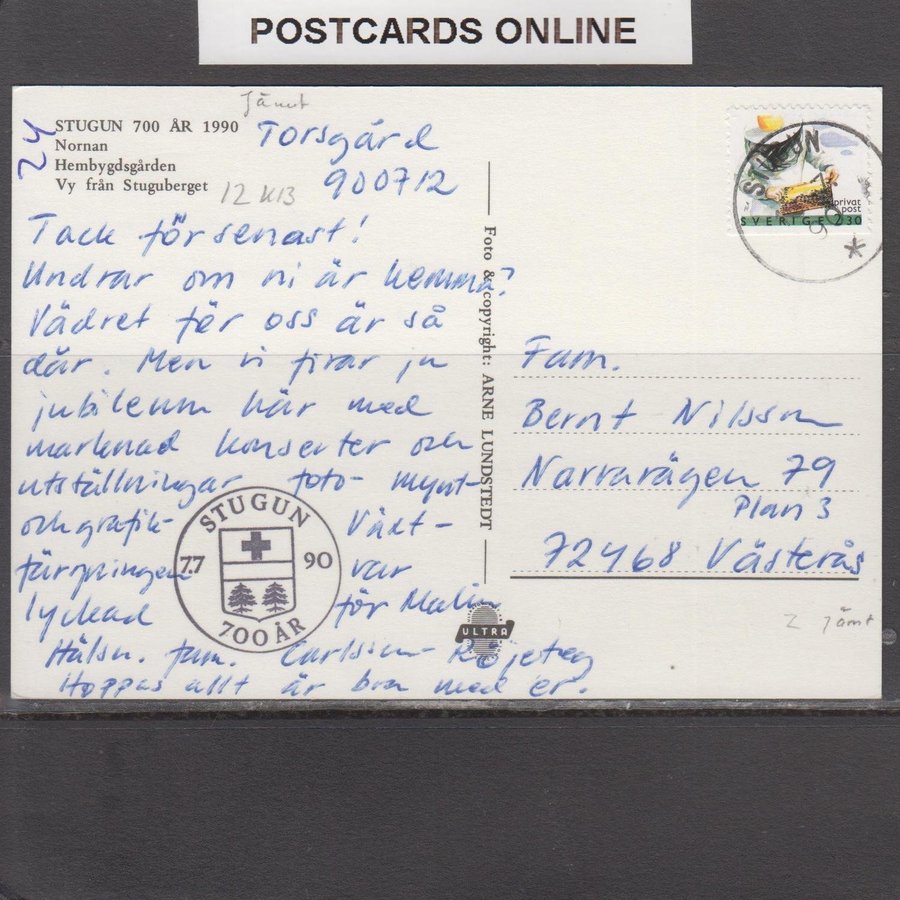 POSTCARDS ONLINE
Jämt
24
STUGUN 700 ÅR 1990
Nornan
Hembygdsgården
Vy från Stuguberget
12 K13
Torsgård
900712
Tack för senast!
Undrar om ni är hemma?
Vädret för oss är så
där. Men vi firar ju
jubileum här med
marknad konserter och
utställningar foto- mynt-
och grafik- Växt-
färgningen var
lyckad för Malin
Hälsn. fam. Carlsson
Hoppas allt är bra med er.
STUGUN
7.7 90
700 ÅR
Foto & copyright: ARNE LUNDSTEDT
ULTRA
STUGUN
privat
post
SVERIGE 2.30
Fam.
Bernt Nilsson
Narvavägen 79
Plan 3
72468 Västerås
Z Jämt